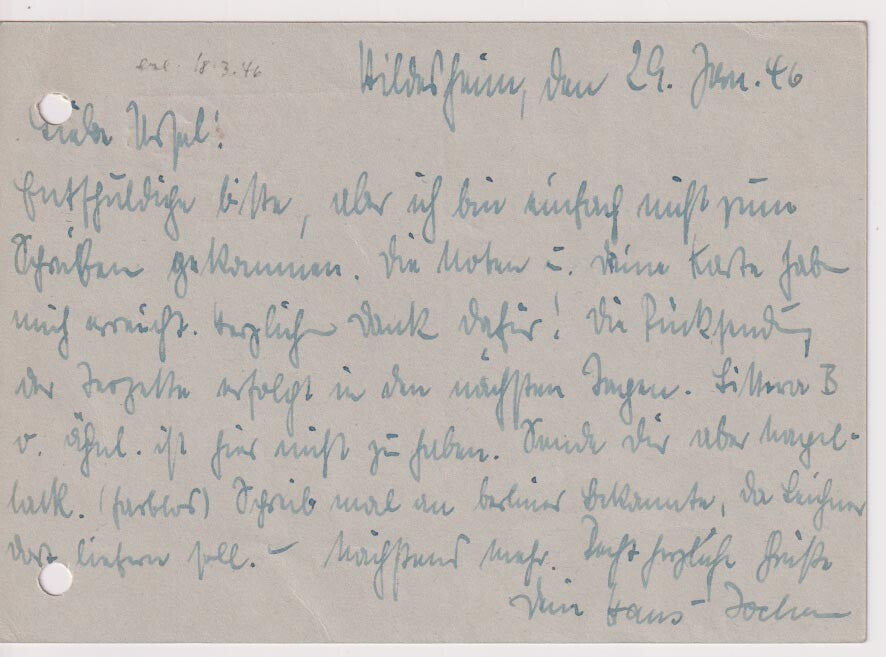 erl. 18.3.46
Hildesheim, den 29. Jan. 46
Liebe Ursel!
Entschuldige bitte, aber ich bin einfach nicht zum
Schreiben gekommen. Die Noten u. Deine Karte hab
mich erreicht. Herzlichen Dank dafür! Die Rücksendung
der Terzette erfolgt in den nächsten Tagen. Littera B
o. ähnl. ist hier nicht zu haben. Sende Dir aber Nagel-
lack. (farblos) Schreib mal an berliner Bekannte, da Leichner
dort liefern soll. – Nächstens mehr. Recht herzliche Grüße
Dein Hans-Jochen